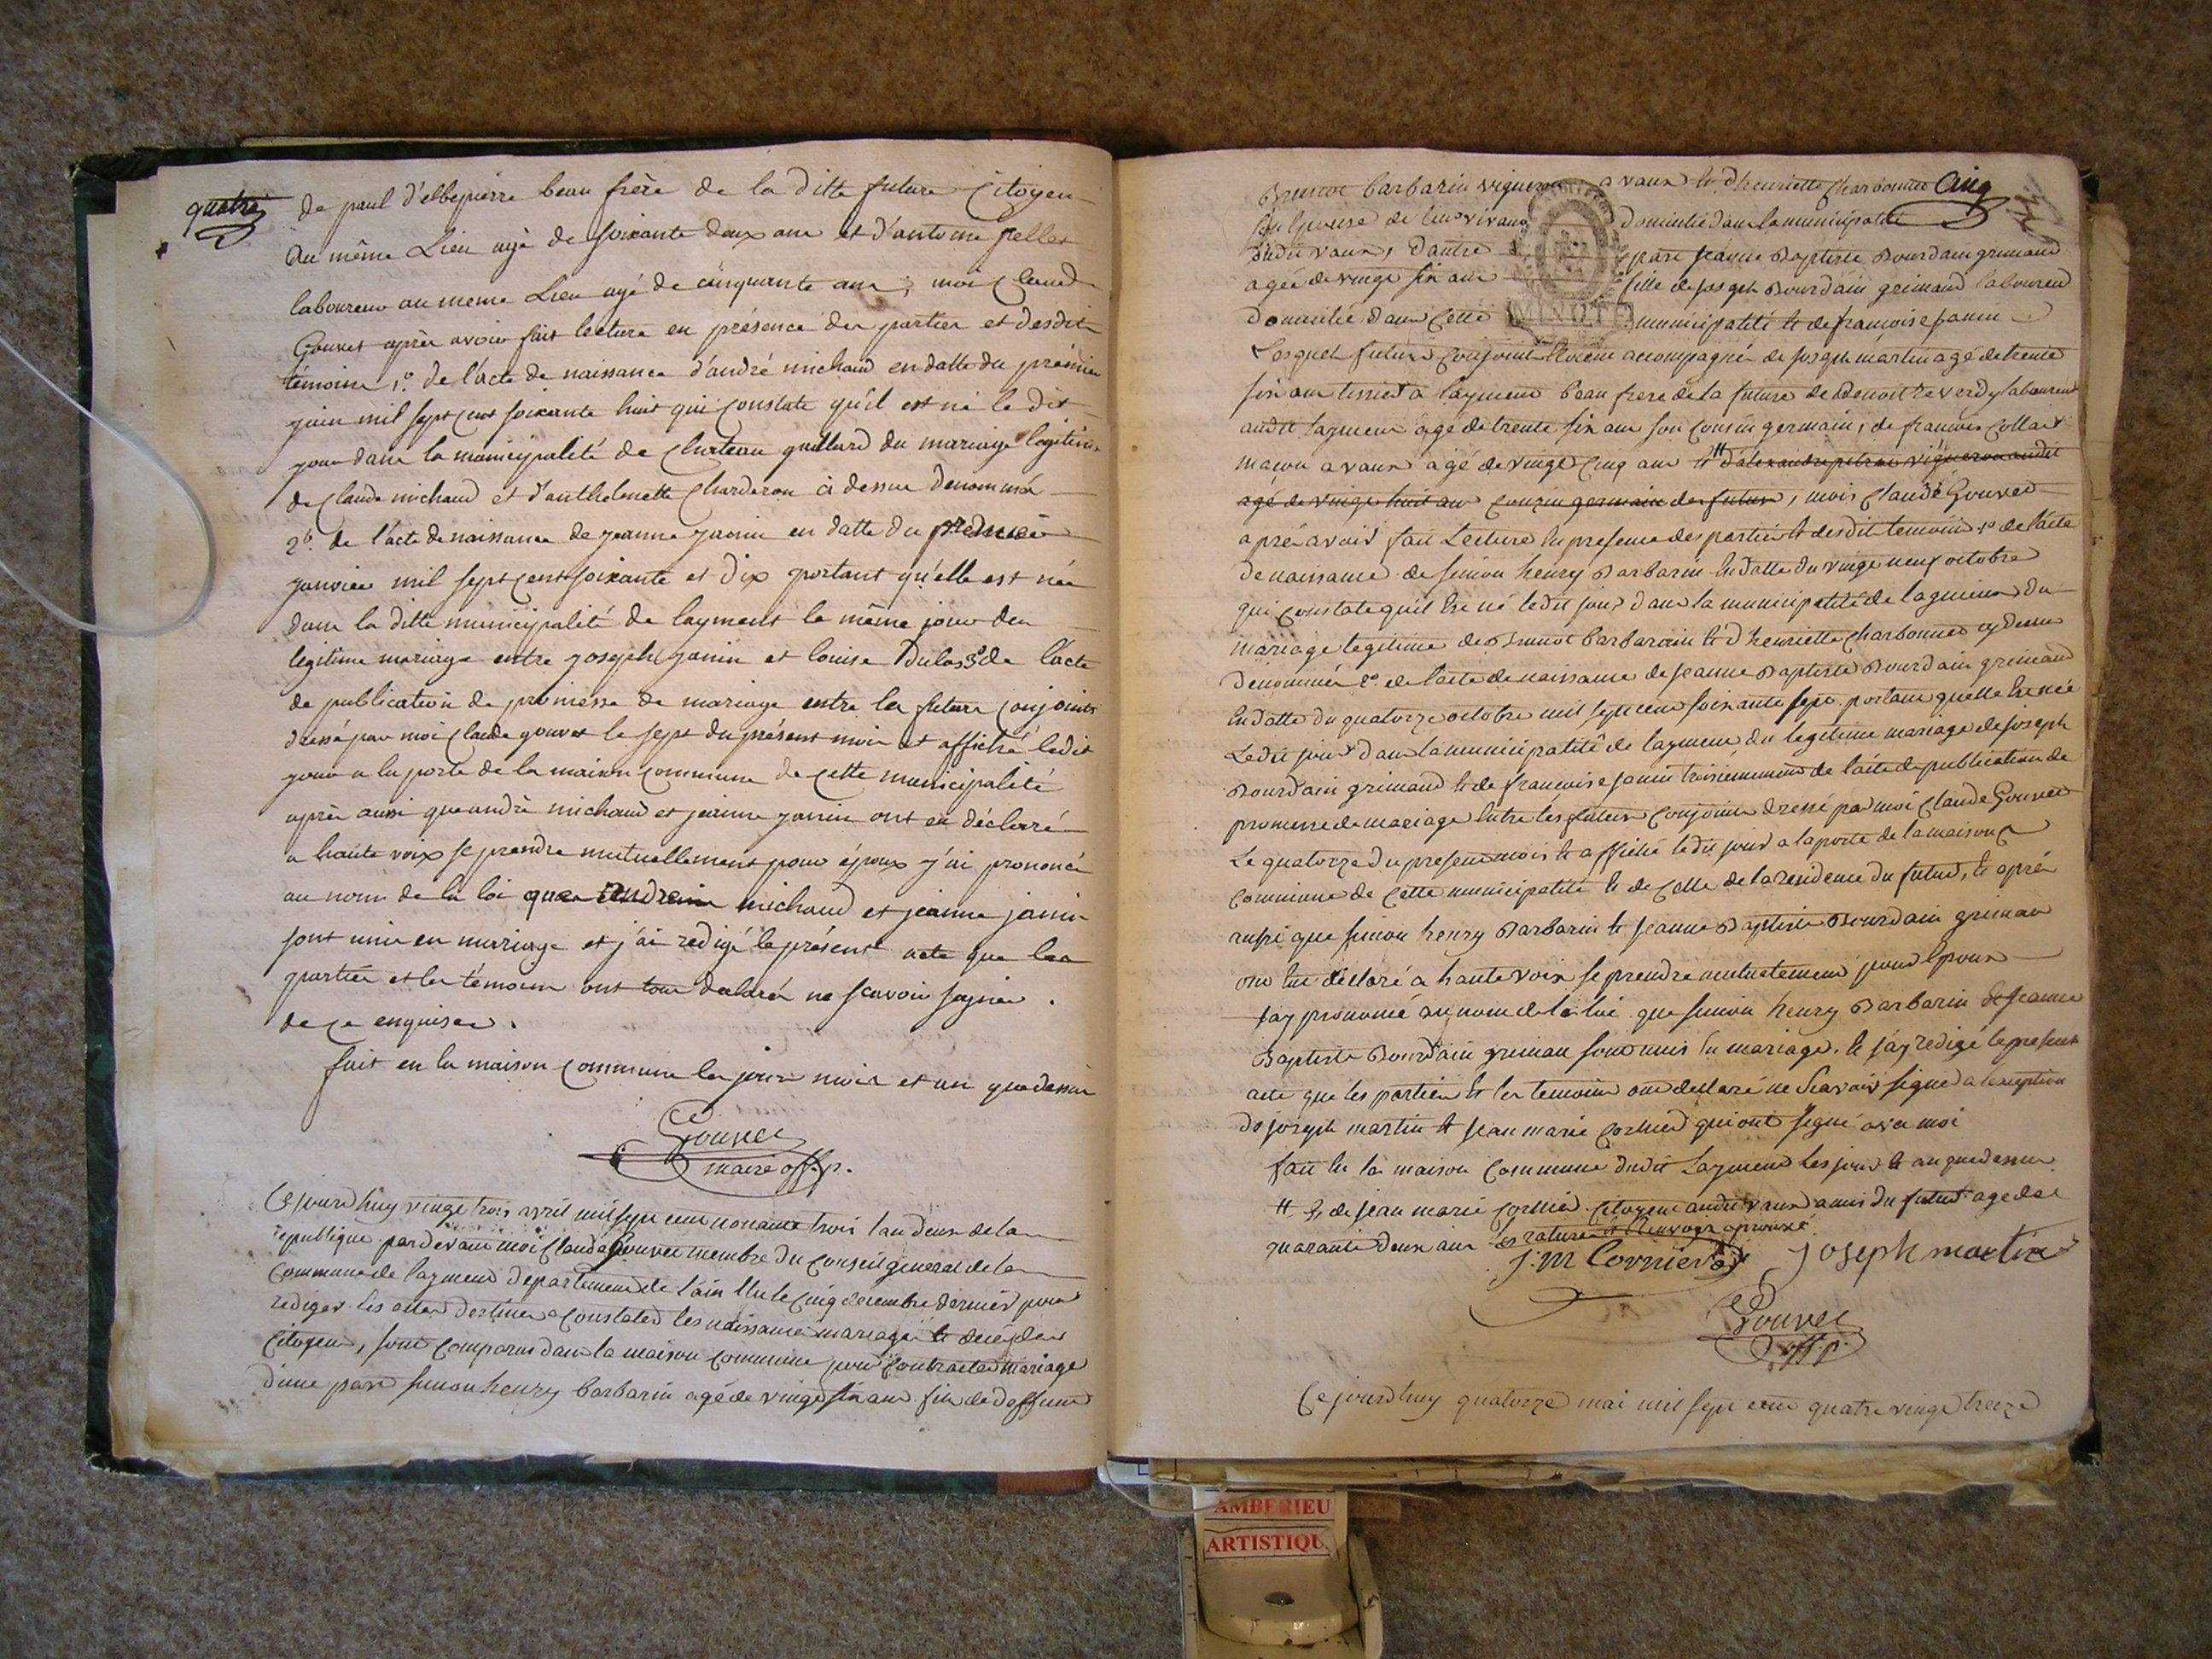 quatre
de paul d'elbepierre beau frère de la ditte future Citoyen
du même Lieu agé de soixante deux ans et d'antoine pellet
laboureur au meme Lieu agé de cinquante ans ; moi Claude
Gouvet après avoir fait lecture en présence des parties et desdits
témoins 1.º de l'acte de naissance d'andré michaud en datte du prémier
juin mil sept cent soixante huit qui constate qu'il est né le dit
jour dans la municipalité de Chateau gaillard du mariage legitime
de Claude michaud et d'anthelmette Charderon ci dessus denommés
2º. de l'acte de naissance de jeanne janin en datte du premier
janvier mil sept cent soixante et dix portant qu'elle est née
dans la ditte municipalité de layment le même jour du
legitime mariage entre joseph janin et louise Dulas 3º de l'acte
de publication de promesse de mariage entre les futurs conjoints
dressé par moi Claude gouvet le sept du présent mois et affiché ledit
jour a la porte de la maison commune de cette municipalité
après aussi que andré michaud et jeanne janin ont eu déclaré
a haute voix se prendre mutuellement pour époux j'ai prononcé
au nom de la loi que michaud et jeanne janin
sont unis en mariage et j'ai redigé le présent acte que les
parties et les témoins ont tous declarés ne scavoir signer .
de ce enquises .
fait en la maison commune les jours mois et an que dessus
Gouvet
maire off. p.
Ce jourd'huy vingt trois avril mil sept cent nonante trois l'an deux de la
republique pardevant moi Claude Gouvet membre du Conseil general de la
Commune de layment departement de l'ain Elu le cinq decembre dernier pour
rediger les actes destinés a constater les naissances mariages et décès des
Citoyens, sont comparus dans la maison commune pour contracter mariage
d'une part simon henry barbarin agé de vingt six ans fils de deffunt
Cinq
Benoit barbarin vigneron a vaux et d'henriette Charbonnet
son Epouse de leur vivant domiciliés dans la municipalité
dudit vaux, d'autre part jeanne Baptiste Bourdain grimaud
agée de vingt six ans fille de joseph Bourdain grimaud laboureur
Domicilié dans cette municipalité et de francoise janin
MINUTE
Lesquels futurs conjoints Etoient accompagnés de joseph martin agé de trente
six ans tissier a layment beau frere de la future de Benoit reverdy laboureur
audit layment agé de trente six ans son cousin germain, de francois Collet
macon a vaux agé de vingt cinq ans et # d'alexandre vigneron audit
agé de vingt huit ans couzin germain des futurs, mois Claude Gouvet
aprés avoir fait Lecture En presence des parties et desdit temoins 1º de l'acte
de naissance de simon henry Barbarin En datte du vingt neuf octobre
qui constate quil Est né ledit jour dans la municipalité de lagnieu du
mariage legitime de Benoit barbarin et d'henriette Charbonnet cy dessus
dénommés 2º de l'acte de naissance de jeanne Baptiste Bourdain grimaud
En datte du quatorze octobre mil sept cent soixante sept portant quelle Est née
Ledit jour dans la municipalité de layment du legitime mariage de joseph
Bourdain grimaud et de francoise janin troisiemement de l'acte de publication de
promesse de mariage Entre les futurs conjoints dressé par moi Claude Gouvet
Le quatorze du present mois et affiché ledit jour a la porte de la maison
Commune de cette municipalité et de celle de la residence du futur, et aprés
aussi que simon henry Barbarin et jeanne Baptiste Bourdain grimau
ont Eu déclaré a haute voix se prendre mutuelement pour Epoux
jay prononcé au nom de la loi que simon henry Barbarin et jeanne
Baptiste Bourdain grimau sont unis En mariage. et j'ay redigé le present
acte que les parties et les temoins ont declaré ne Scavoir signer a l'exeption
de joseph martin et jean marie Cornier qui ont signé avec moi
fait En la maison Commune dudit Layment les jour et an que dessus
# et de jean marie Cornier Citoyen audit vaux amis du futur agé de
quarante deux ans les rature et renvoi aprouvé
J: M Cornier joseph martin
Gouvet
off. p.
Ce jourd'huy quatorze mai mil sept cent quatre vingt treize
AMBERIEU
ARTISTIQU